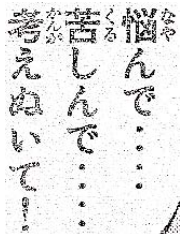 悩んで・・・・
苦しんで・・・・
考えぬいて！